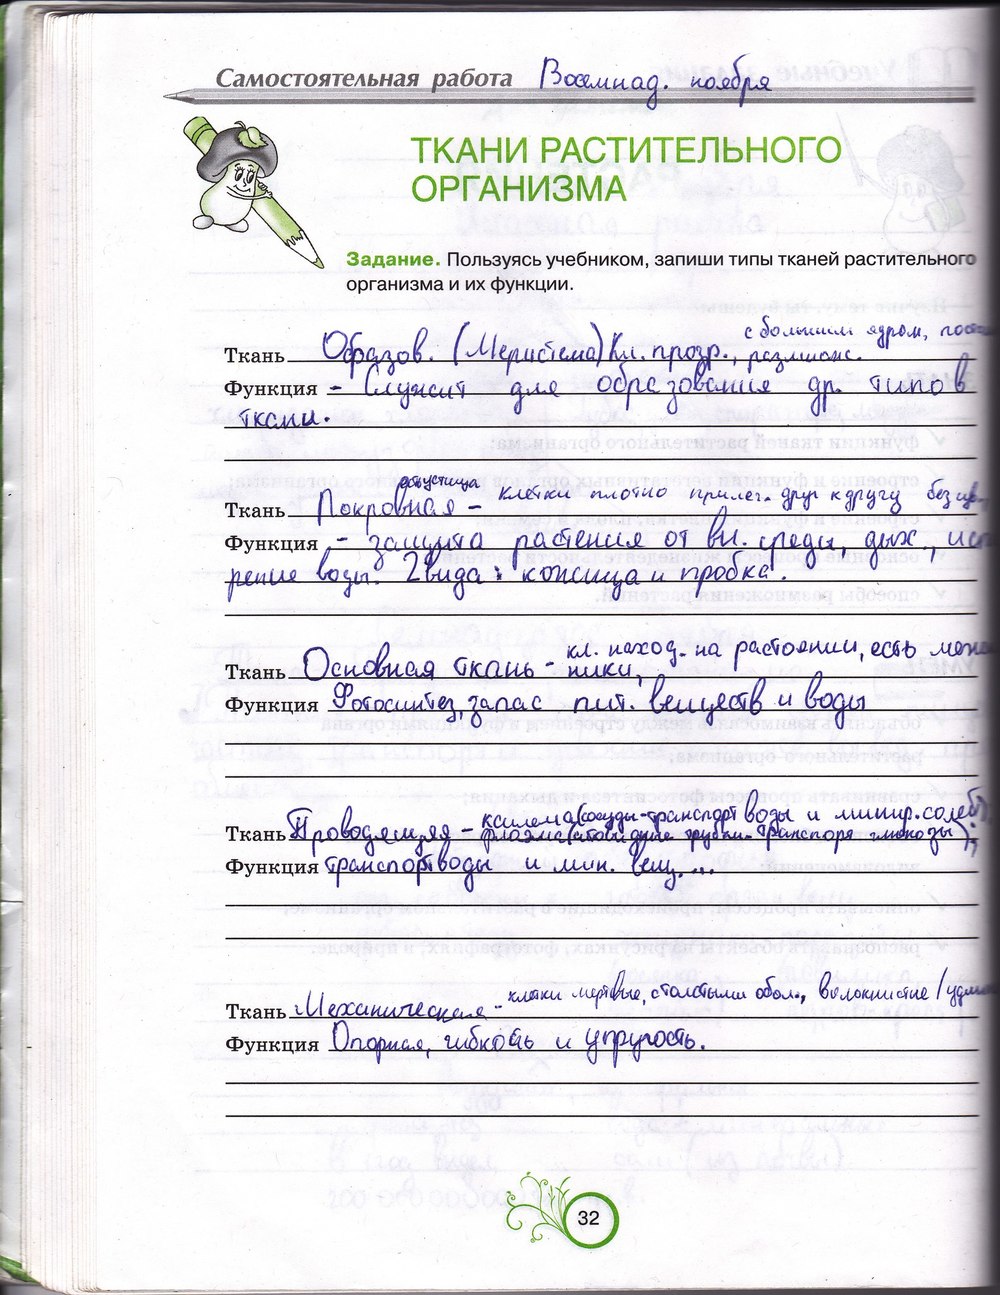 Самостоятельная работа Восемнад. ноября
ТКАНИ РАСТИТЕЛЬНОГО
ОРГАНИЗМА
Задание. Пользуясь учебником, запиши типы тканей растительного
организма и их функции.
с большим ядром,
Ткань Образов. (Меристема) Кл. прозр.,
Функция - Служит для образования др. типов
ткани.
Ткань Покровная - клетки плотно прилег. друг к другу без
Функция - защита растения от вн. среды, дых., исп
рение воды. 2 вида: кожица и пробка.
кл. наход. на растоянии, есть
Ткань Основная ткань - ники,
Функция Фотосинтез, запас пит. веществ и воды
ксилема (сосуды - транспорт воды и минир. солей)
Ткань Проводящяя - флоэма (ситовидные трубки - транспорт глюкозы);
Функция транспорт воды и мин. вещ. ...
клетки мертвые, столстыми обол., волокнистые
Ткань Механическая -
Функция Опорная, гибкость и упругость.
32